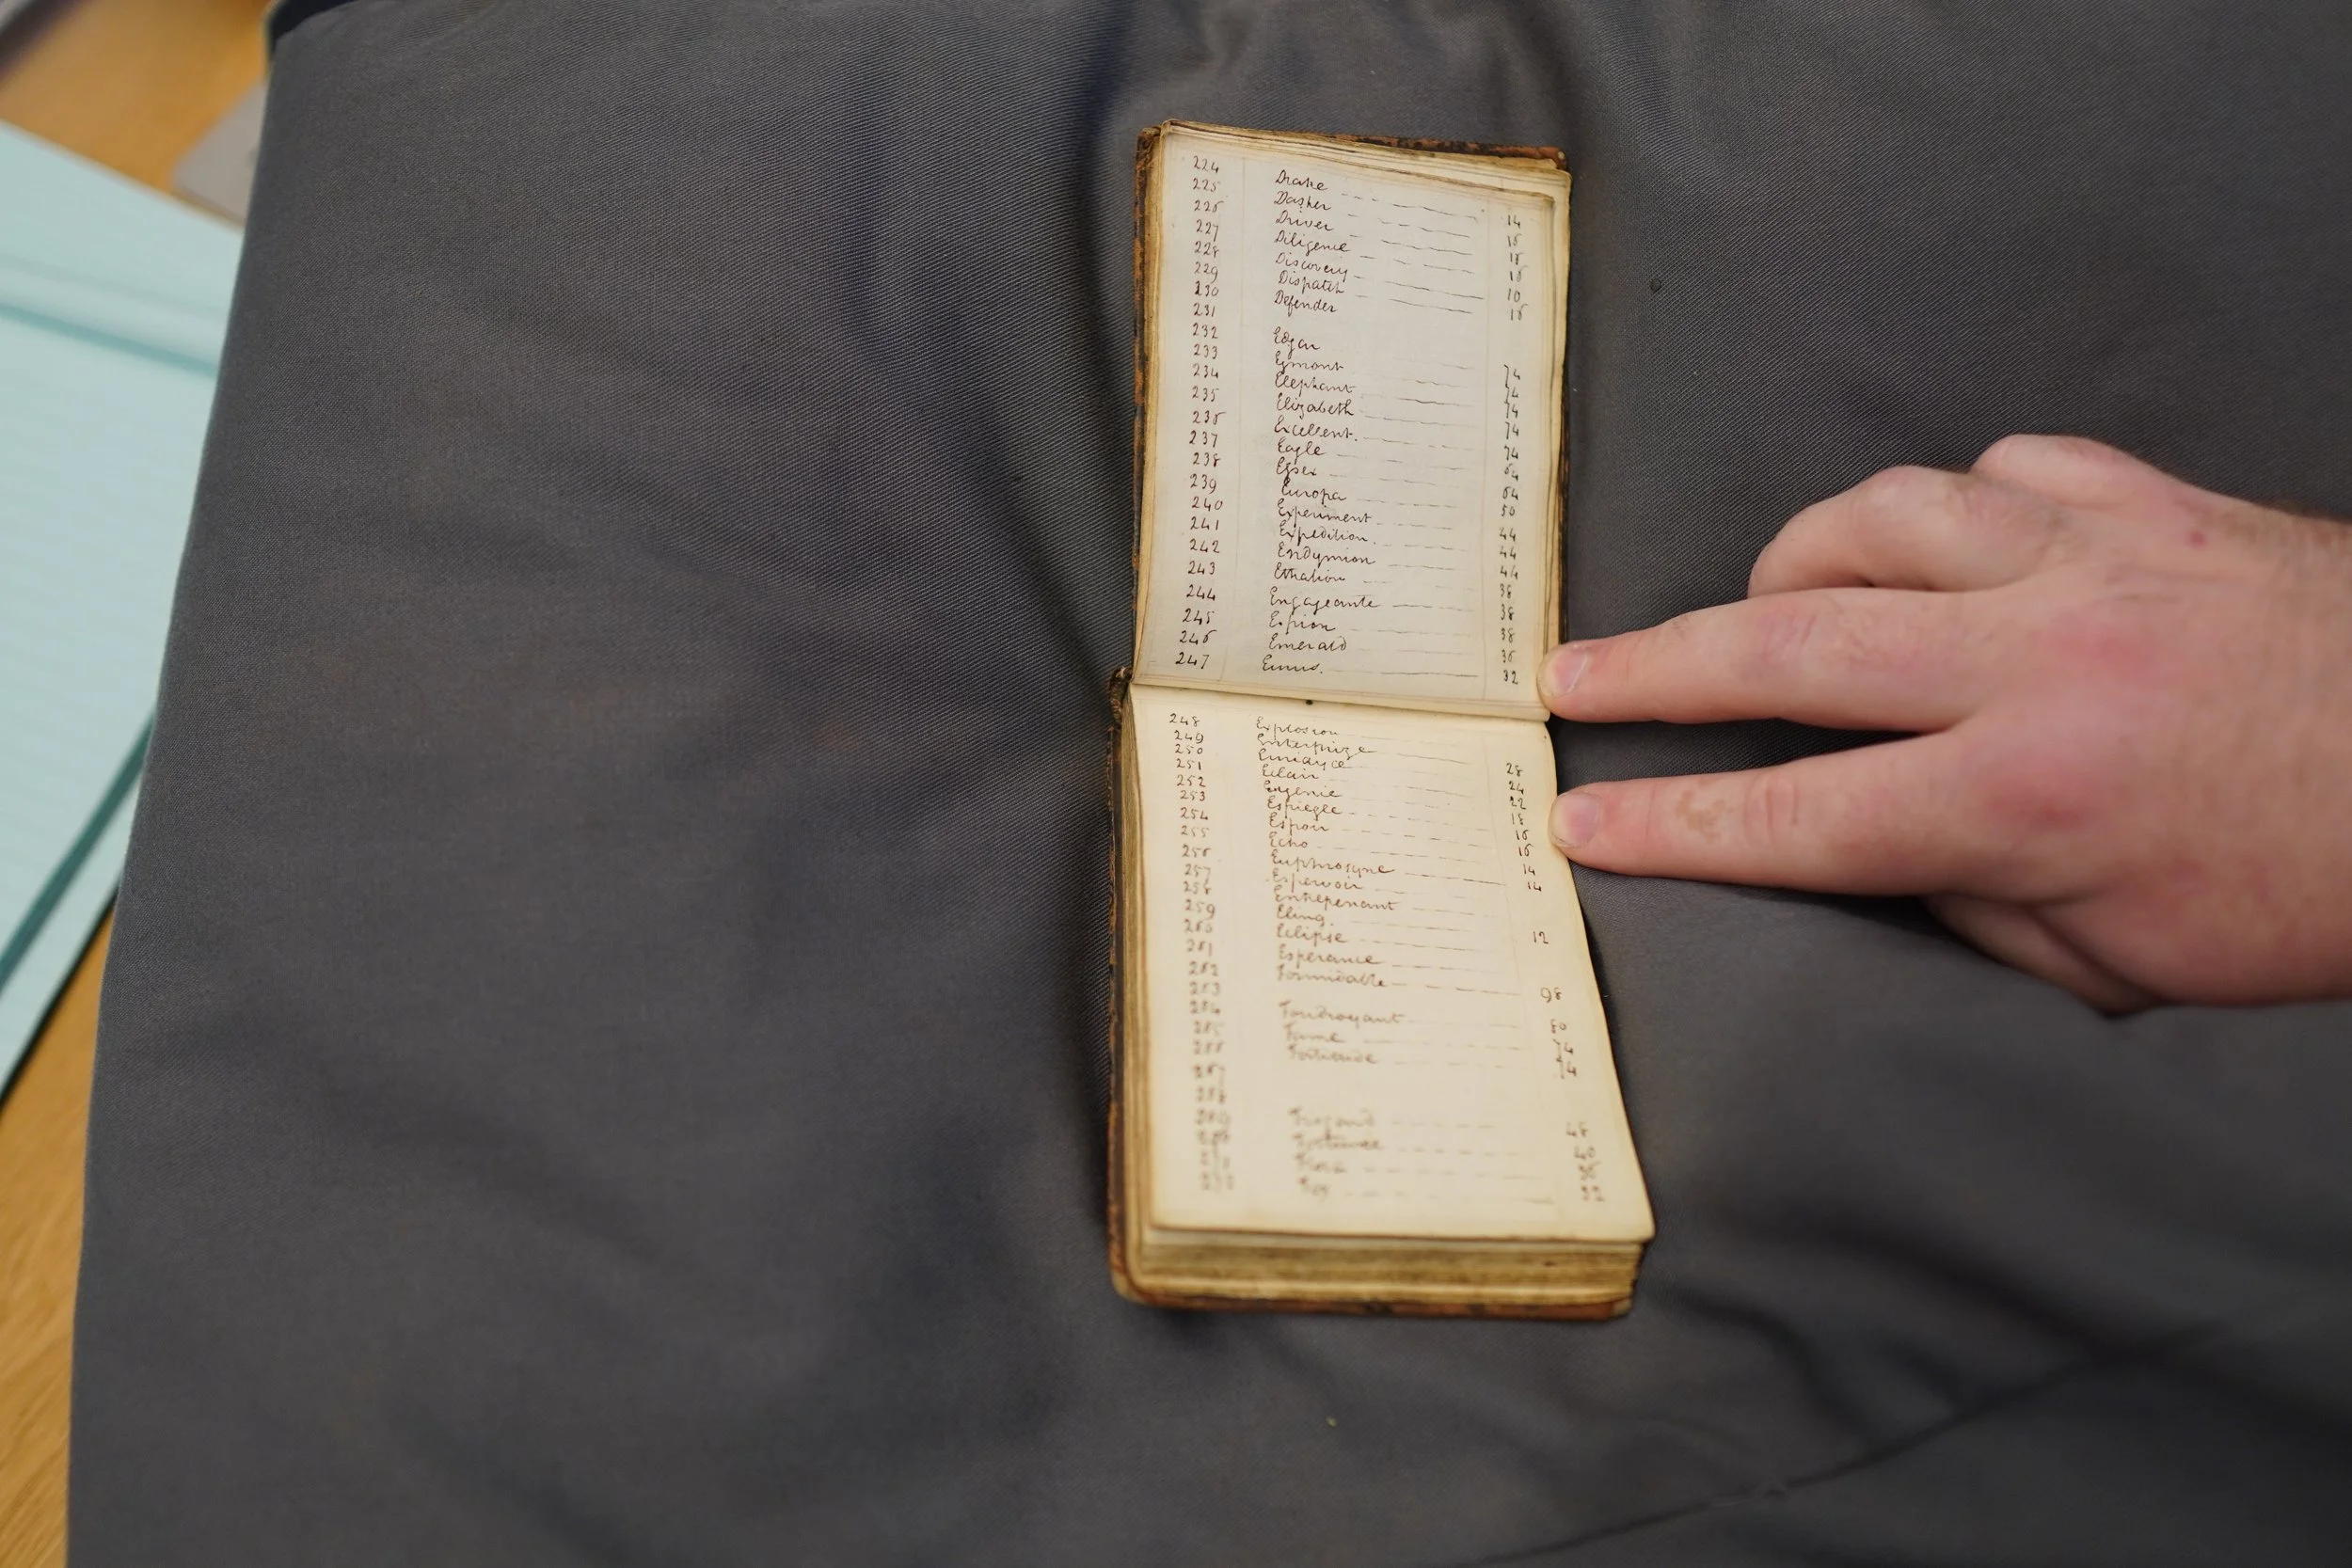 224 Drake 14
225 Dasher 16
226 Driver 18
227 Diligence 16
228 Discovery 10
229 Dispatch 16
230 Defender
231
232 Edgar 74
233 Egmont 74
234 Elephant 74
235 Elizabeth 74
236 Excellent. 74
237 Eagle 64
238 Essex 64
239 Europa 50
240 Experiment 44
241 Expedition. 44
242 Endymion 44
243 Ethalion 38
244 Engageante 38
245 Espion 38
246 Emerald 36
247 Eurus. 32
248 Explosion
249 Enterprize 28
250 Euridyce 24
251 Eclair 22
252 Eugenie 18
253 Espiegle 16
254 Espoir 16
255 Echo 14
256 Euphrosyne 14
257 Espervoir
258 Entrepenant
259 Eling. 12
260 Eclipse
261 Esperance
262 Formidable 98
263
264 Foudroyant 80
265 Fame 74
266 Fortitude 74
267
268
269 48
270 Fortunee 40
271 Flora 36
272 Fox 32